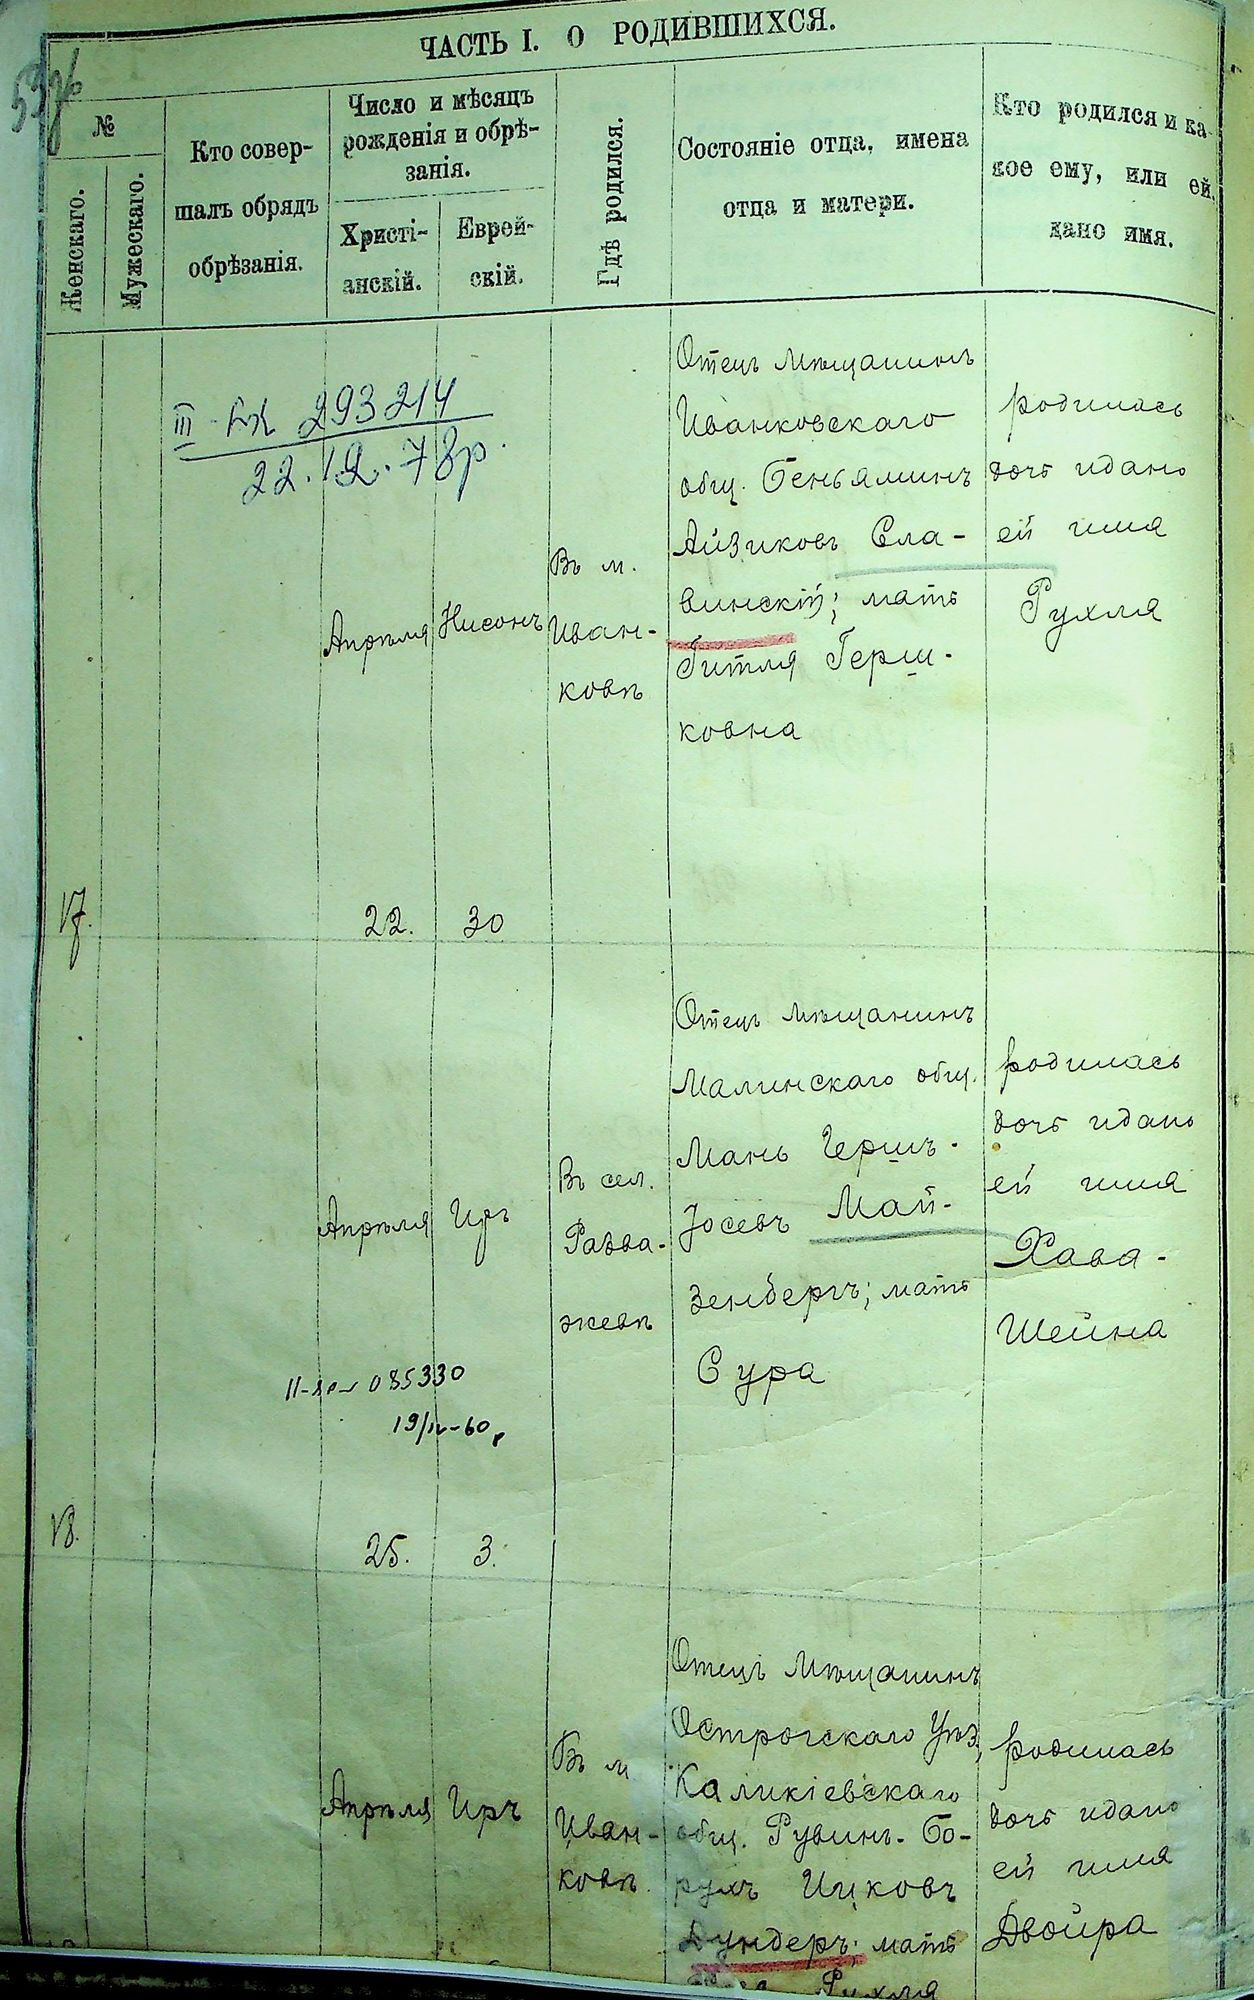 ЧАСТЬ I. О РОДИВШИХСЯ.
№
Женскаго.
Мужескаго.
Кто совер-
шалъ обрядъ
обрѣзанія.
Число и мѣсяцъ
рожденія и обрѣ-
занія.
Христі-
анскій.
Еврей-
скій.
Гдѣ родился.
Состояніе отца, имена
отца и матери.
Кто родился и ка-
кое ему, или ей,
дано имя.
III 293214
22.12.78р.
17.
Апрѣля
22.
Нисонъ
30
Въ м.
Иван-
ковѣ
Отецъ мѣщанинъ
Иванковскаго
общ. Беньяминъ
Айзиковъ Сла-
винскій; мать
Гитля Герш-
ковна
родилась
дочь и дано
ей имя
Рухля
18.
Апрѣля
25.
Иръ
3.
Въ сел.
Разва-
жевѣ
Отецъ мѣщанинъ
Малинскаго общ.
Мань Гершъ-
Іосевъ Май-
зенбергъ; мать
Сура
родилась
дочь и дано
ей имя
Хава-
Шейна
085330
19/IV-60р
Апрѣля
Иръ
Въ м
Иван-
ковѣ.
Отецъ мѣщанинъ
Острогскаго Уѣз.
Каликіевскаго
общ. Рувинъ-Бо-
рухъ Ицковъ
Дундеръ; мать
Рухля
родилась
дочь и дано
ей имя
Двойра